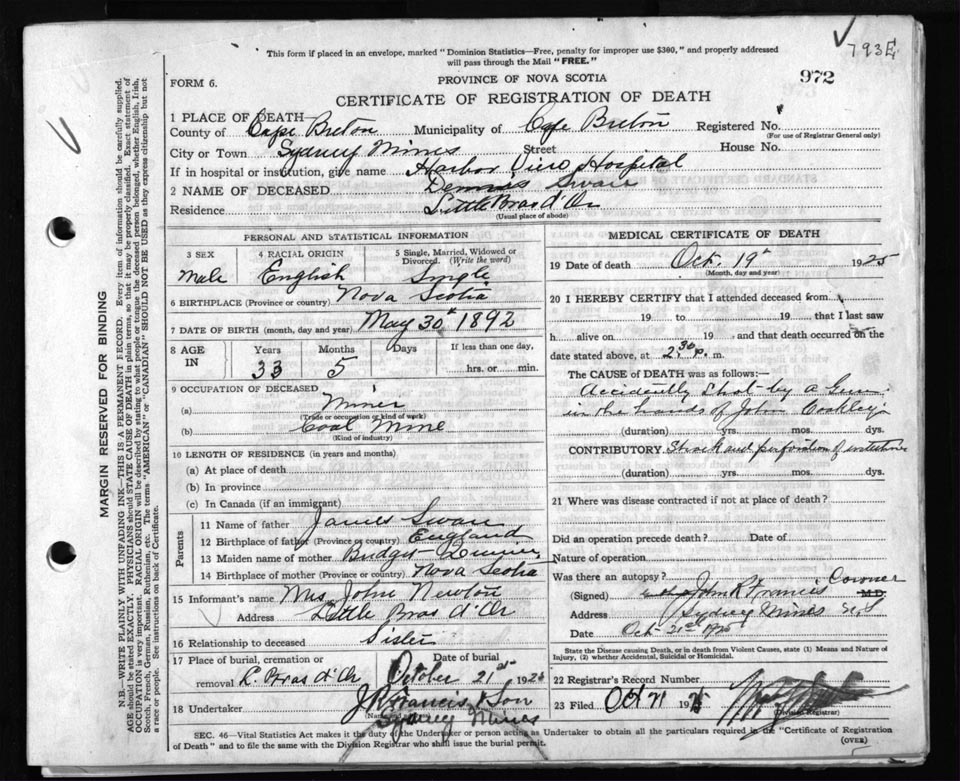 793E
This form if placed in an envelope, marked "Dominion Statistics—Free, penalty for improper use $300," and properly addressed
will pass through the Mail "FREE."
FORM 6.
PROVINCE OF NOVA SCOTIA
972
CERTIFICATE OF REGISTRATION OF DEATH
1 PLACE OF DEATH
County of Cape Breton Municipality of Cape Breton Registered No.
(For use of Registrar General only)
City or Town Sydney Mines Street House No.
If in hospital or institution, give name Harbor View Hospital
2 NAME OF DECEASED Dennis Swan
Residence Little Bras d'Or
(Usual place of abode)
PERSONAL AND STATISTICAL INFORMATION
3 SEX 4 RACIAL ORIGIN 5 Single, Married, Widowed or
Divorced. (Write the word)
Male English Single
6 BIRTHPLACE (Province or country) Nova Scotia
7 DATE OF BIRTH (month, day and year) May 30th 1892
8 AGE IN Years Months Days If less than one day,
33 5 hrs. or min.
9 OCCUPATION OF DECEASED
(a) Miner
(Trade or occupation or kind of work)
(b) Coal Mine
(Kind of industry)
10 LENGTH OF RESIDENCE (in years and months)
(a) At place of death
(b) In province
(c) In Canada (if an immigrant)
Parents
11 Name of father James Swan
12 Birthplace of father (Province or country) England
13 Maiden name of mother Bridget
14 Birthplace of mother (Province or country) Nova Scotia
15 Informant's name Mrs John Newton
Address Little Bras d'Or
16 Relationship to deceased Sister
17 Place of burial, cremation or Date of burial
removal L. Bras d'Or October 21st 1925
18 Undertaker J R Francis & Son
Sydney Mines
MEDICAL CERTIFICATE OF DEATH
19 Date of death Oct. 19th 1925
(Month, day and year)
20 I HEREBY CERTIFY that I attended deceased from
19 to 19 that I last saw
h alive on 19 - and that death occurred on
date stated above, at 2.30 p. m.
The CAUSE OF DEATH was as follows:—
Accidently Shot by a Gun
in the hands of John
(duration) yrs. mos. dys.
CONTRIBUTORY Shock and perforation of intestines
(duration) yrs. mos. dys.
21 Where was disease contracted if not at place of death?
Did an operation precede death? Date of
Nature of operation
Was there an autopsy?
(Signed) John R Francis Coroner M.D.
Address Sydney Mines
Date Oct 21st 1925
State the Disease causing Death, or in death from Violent Causes, state (1) Means and Nature of
Injury, (2) whether Accidental, Suicidal or Homicidal.
22 Registrar's Record Number
23 Filed Oct 21 1925
Division Registrar)
SEC. 46—Vital Statistics Act makes it the duty of the Undertaker or person acting as Undertaker to obtain all the particulars required in the "Certificate of Registration
of Death" and to file the same with the Division Registrar who shall issue the burial permit.
(OVER)
MARGIN RESERVED FOR BINDING
N.B.—WRITE PLAINLY WITH UNFADING INK—THIS IS A PERMANENT RECORD. Every item of information should be carefully supplied.
AGE should be stated EXACTLY. PHYSICIANS should STATE CAUSE OF DEATH in plain terms, so that it may be properly classified. Exact statement of
OCCUPATION is very important. RACIAL ORIGIN will be described by stating to what people or tongue the deceased person belonged, whether English, Irish,
Scotch, French, German, Russian, Ruthenian, etc. The terms "AMERICAN" or "CANADIAN" SHOULD NOT BE USED as they express citizenship but not
a race or people. See instructions on back of Certificate.